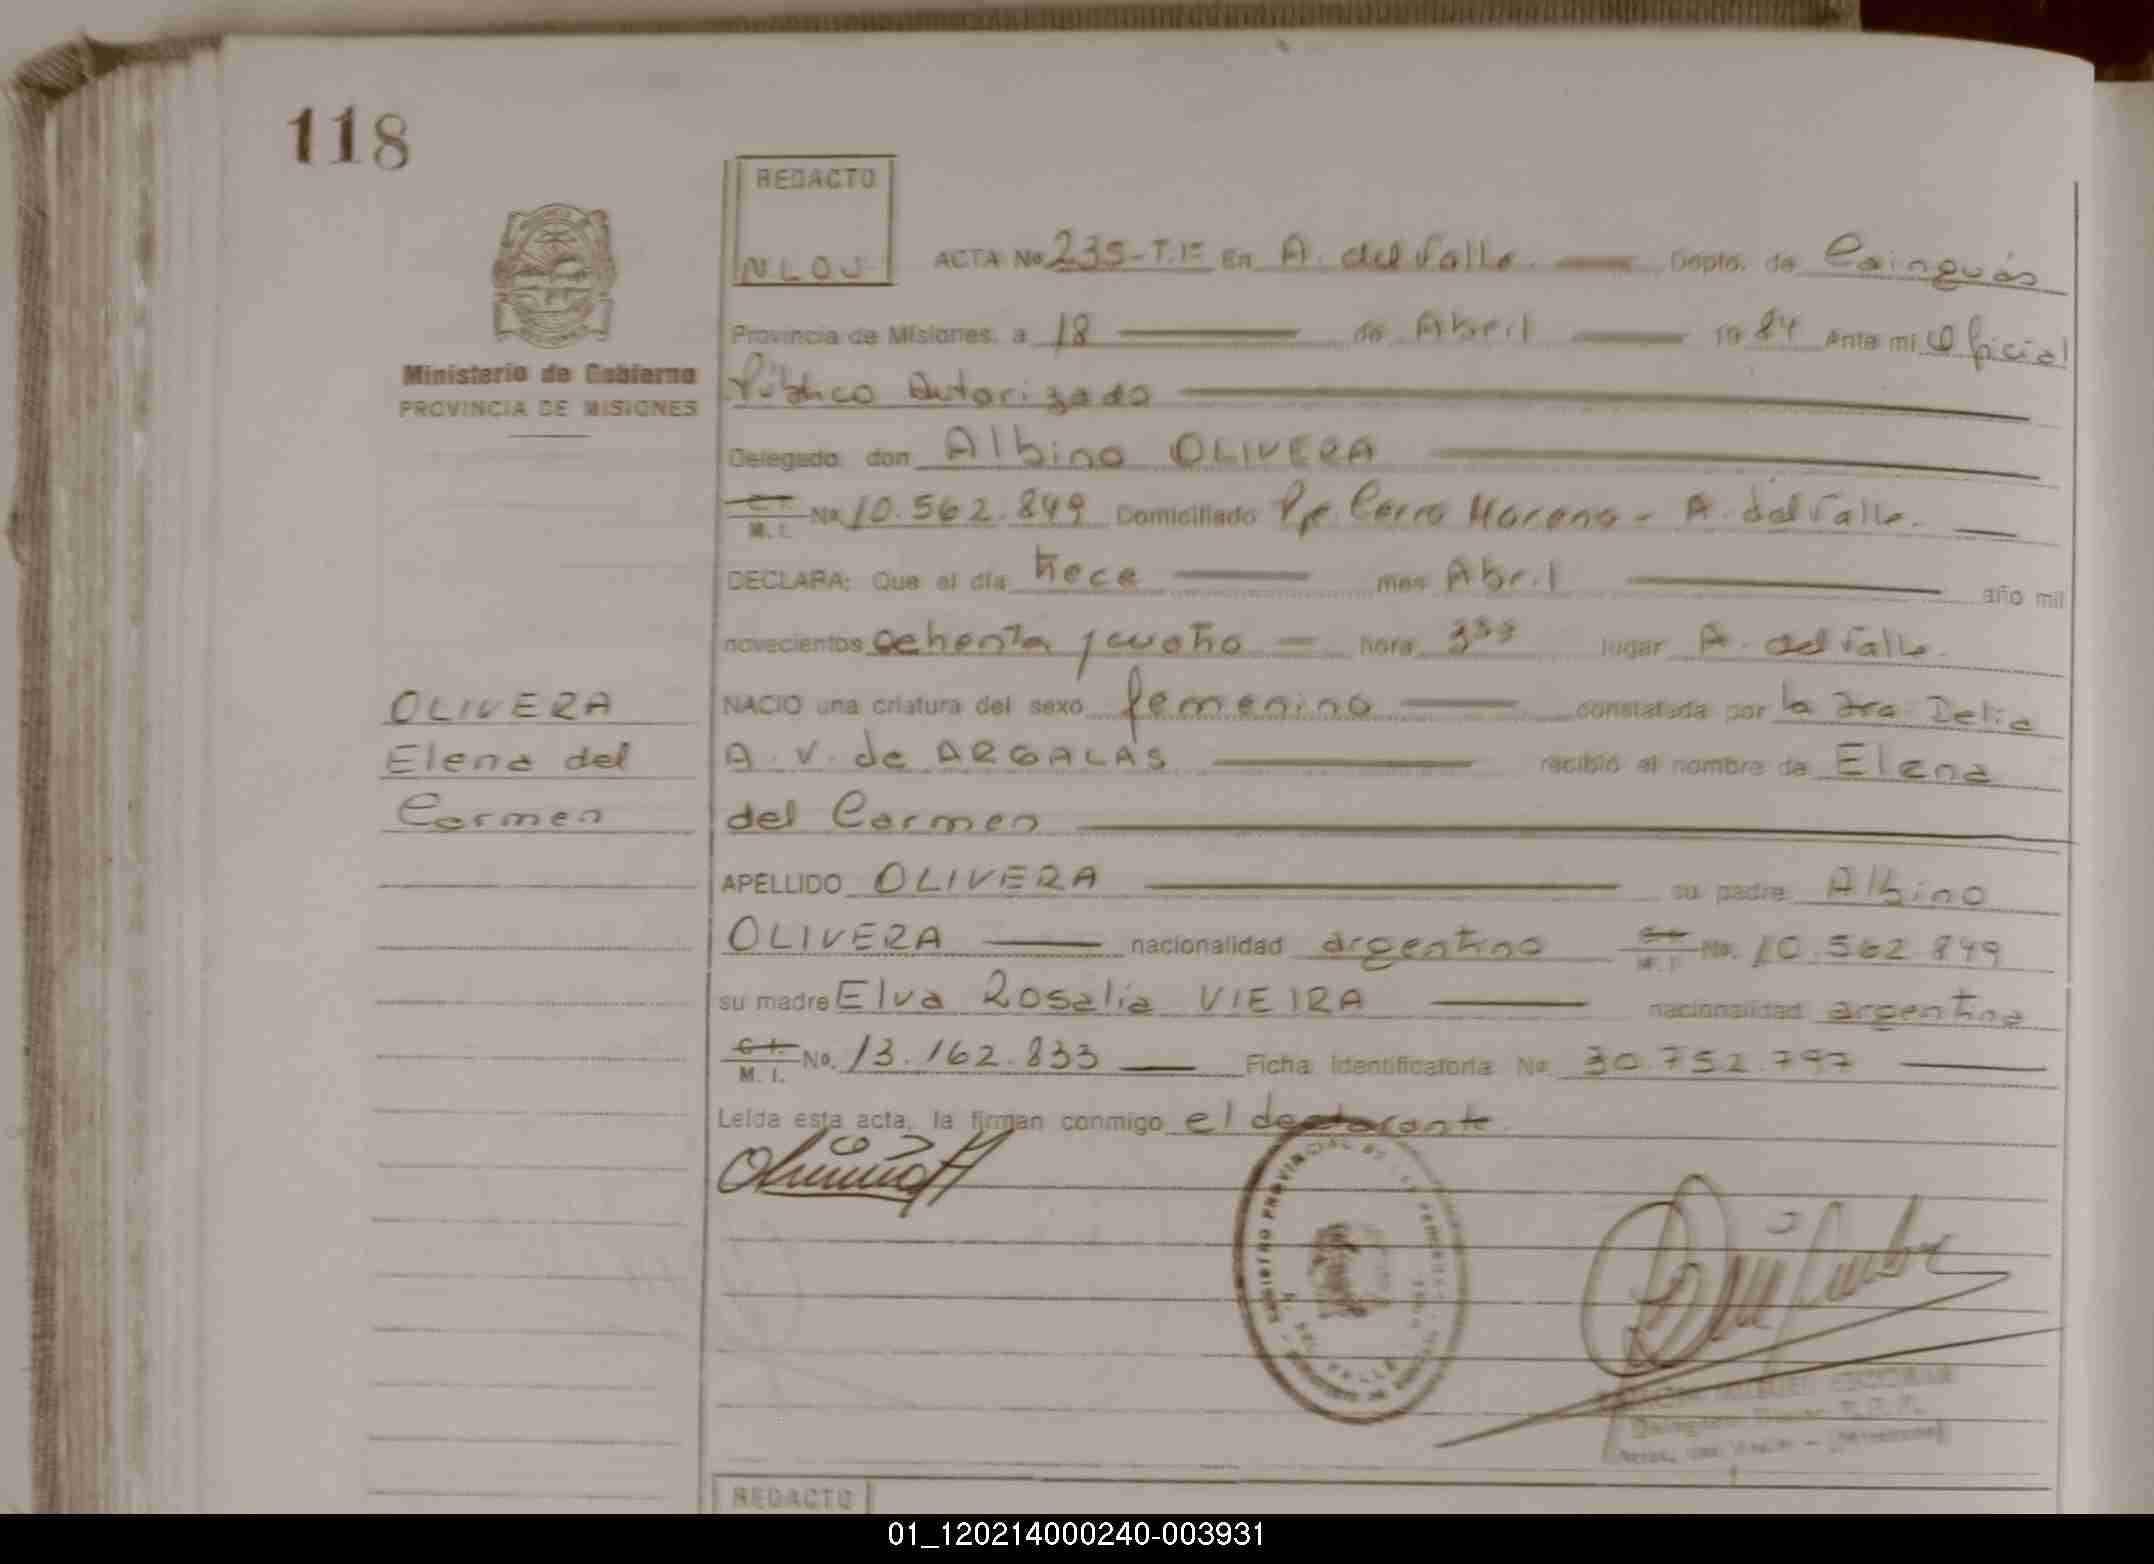 118
REDACTO
NLOJ
ACTA No 235-T.1º En A. del Valle. Depto. de Cainguás
Ministerio de Gobierno
PROVINCIA DE MISIONES
Provincia de Misiones, a 18 de Abril 19 84 Ante mi Oficial
Público Autorizado
Delegado don Albino OLIVERA
C.I. M.I. No 10.562.849 Domiciliado Pje Cerro Moreno - A. del Valle.
DECLARA: Que el día trece mes Abril año mil
novecientos ochenta y cuatro hora lugar A. del Valle.
OLIVERA
Elena del
Carmen
NACIO una criatura del sexo femenino constatada por la Dra Delia
A. V. de ARGALAS recibió el nombre de Elena
del Carmen
APELLIDO OLIVERA su padre Albino
OLIVERA nacionalidad argentino C.I. M.I. No. 10.562.849
su madre Elva Rosalia VIEIRA nacionalidad argentina
C.I. M.I. No. 13.162.833 Ficha identificatoria No 30.752.797
Leída esta acta, la firman conmigo el declarante
REDACTO
01_120214000240-003931